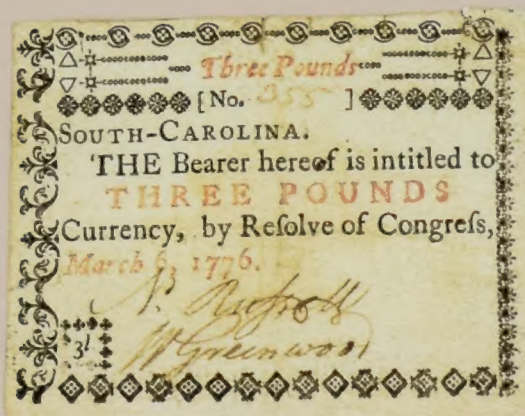 Three Pounds
[No. 355 ]
SOUTH-CAROLINA.
THE Bearer hereof is intitled to
THREE POUNDS
Currency, by Reſolve of Congreſs,
March 6, 1776.
W Greenwood
3l